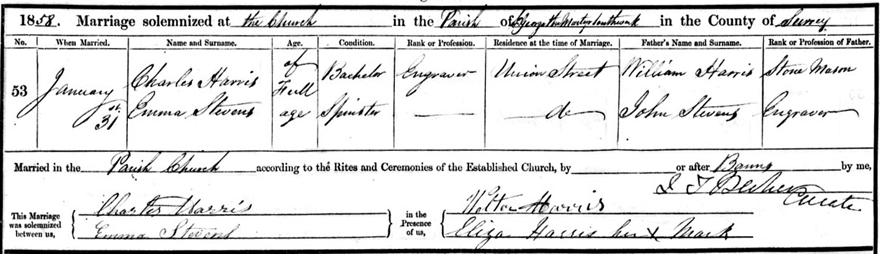 1858. Marriage solemnized at the Church in the Parish of George the Martyr Southwark in the County of Surrey
No. When Married. Name and Surname. Age. Condition. Rank or Profession. Residence at the time of Marriage. Father's Name and Surname. Rank or Profession of Father.
53 January 31st Charles Harris of Full age Bachelor Engraver Union Street William Harris Stone Mason
Emma Stevens Spinster — do John Stevens Engraver
Married in the Parish Church according to the Rites and Ceremonies of the Established Church, by or after Banns by me,
Curate
This Marriage was solemnized between us, Charles Harris in the Presence of us, Harris
Emma Stevens Eliza Harris her X Mark